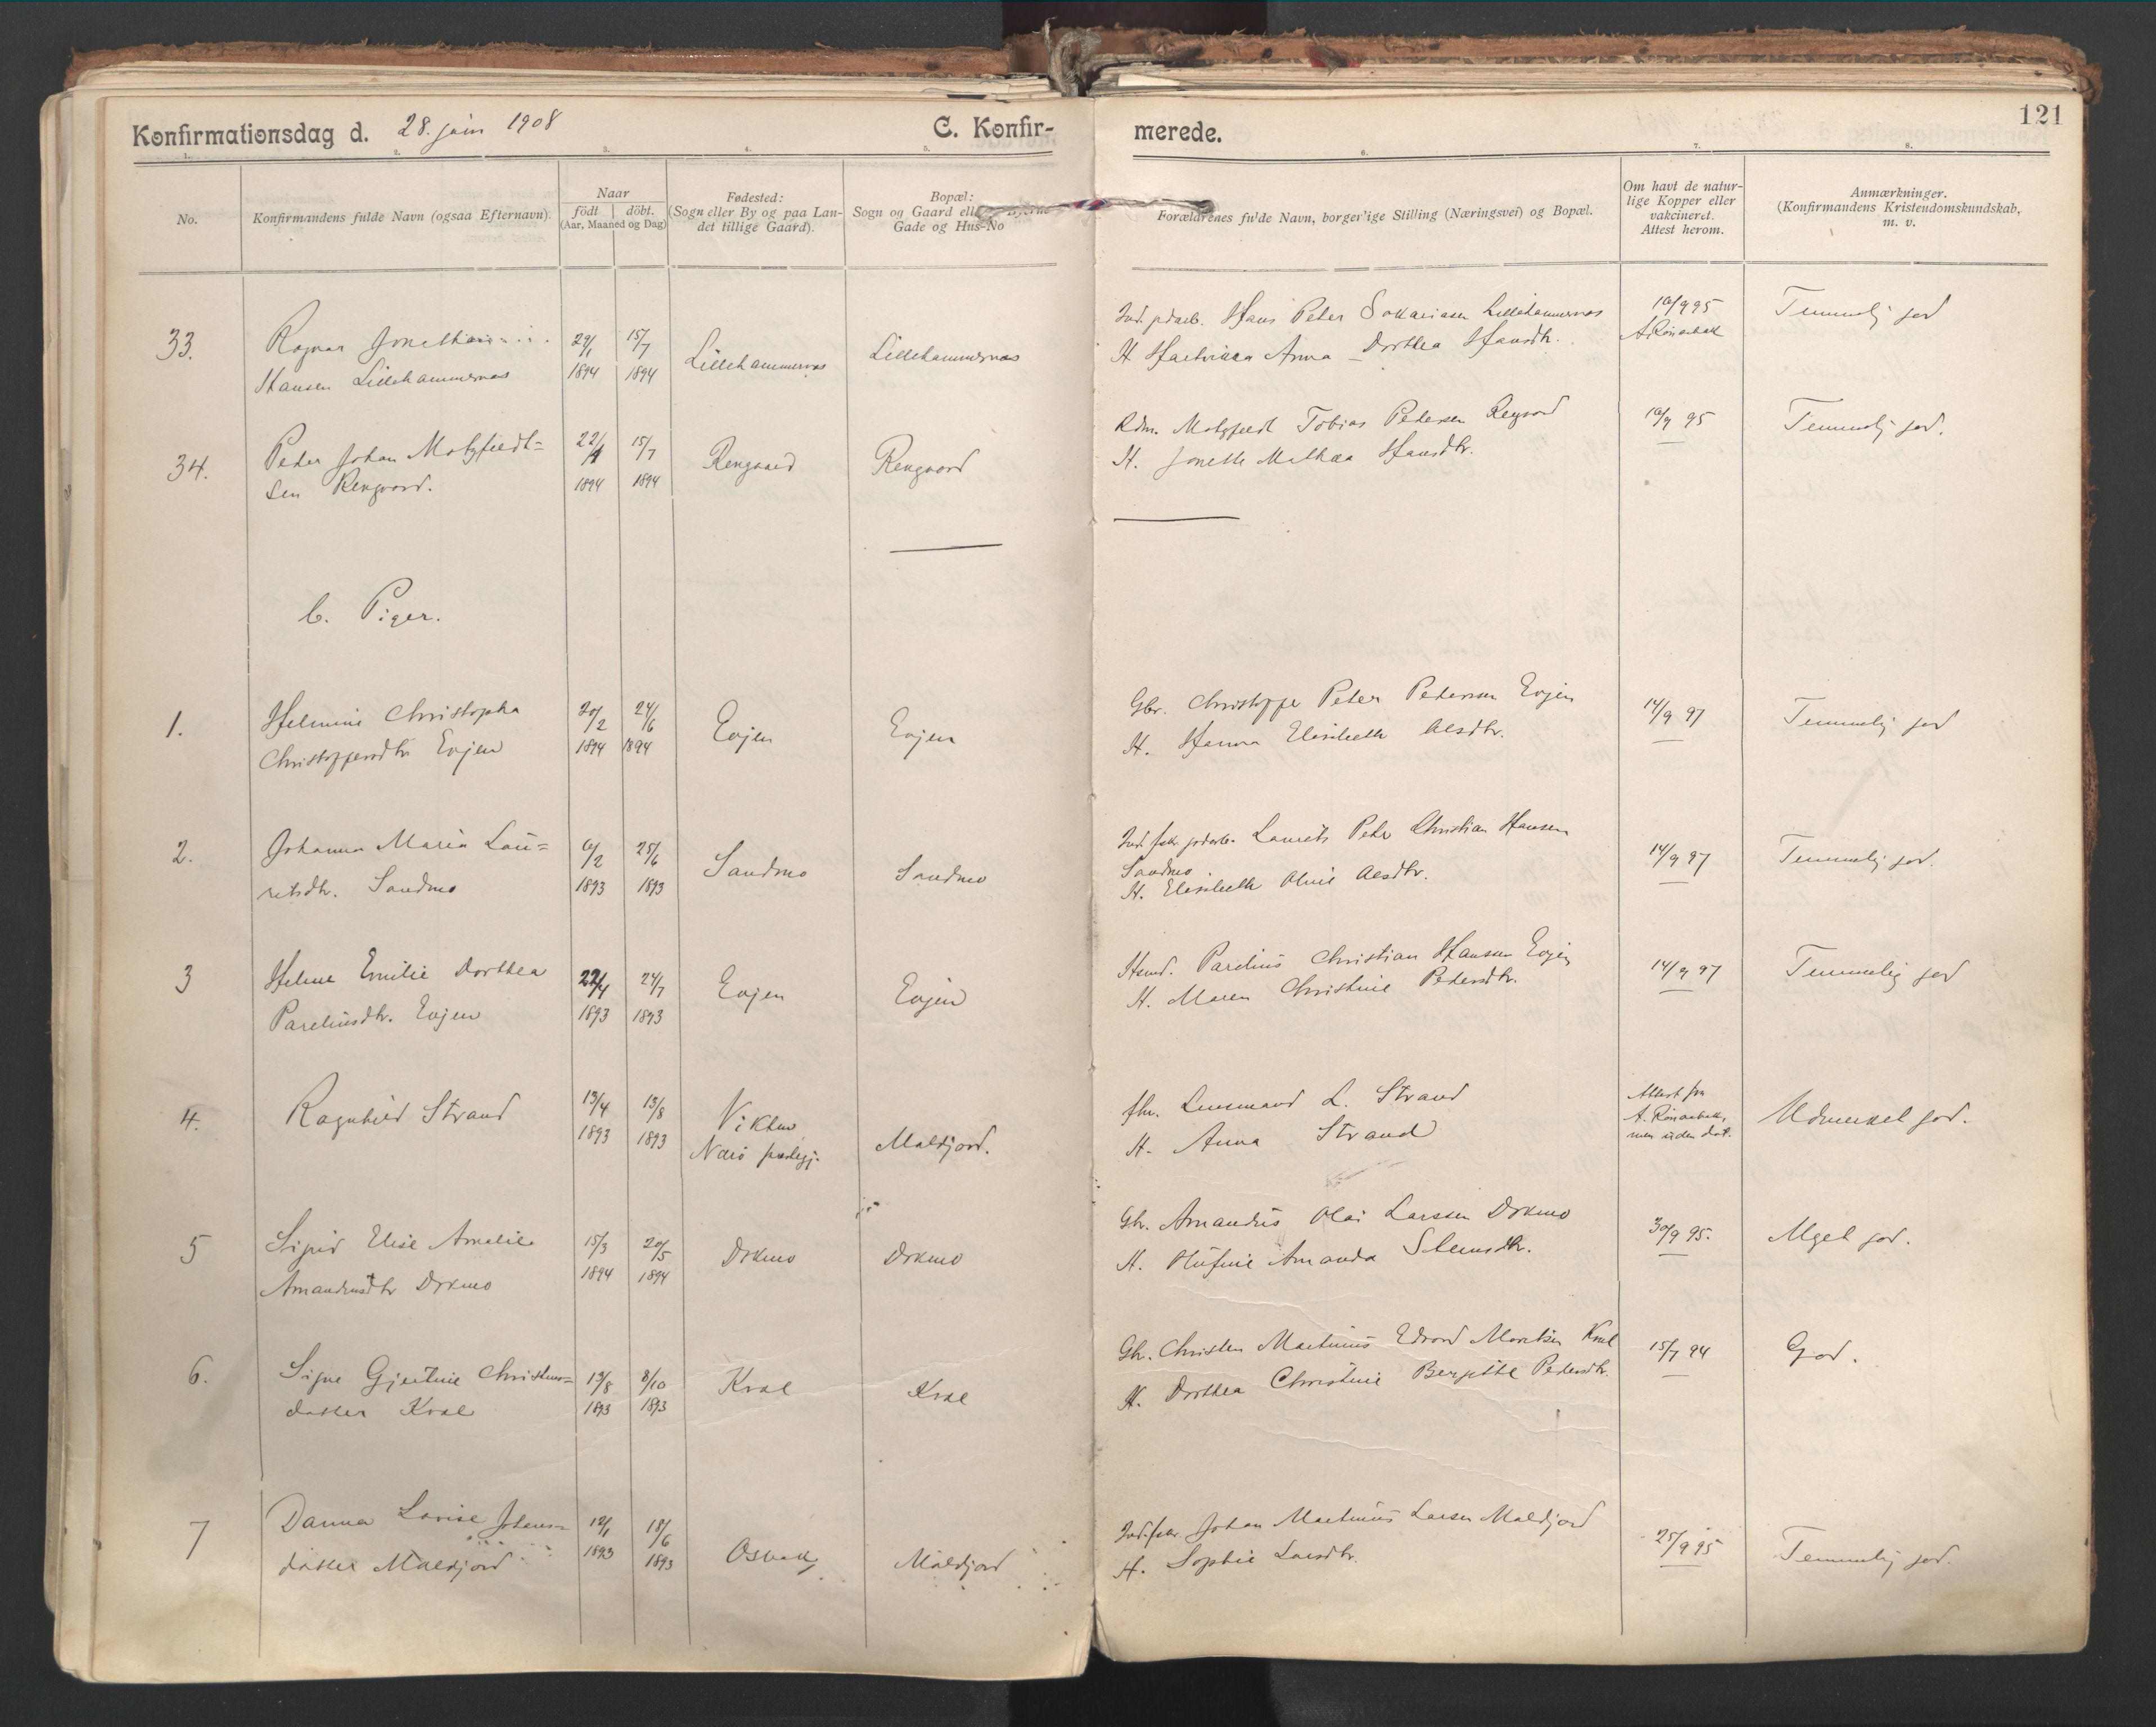 Konfirmationsdag d. 28. juni 1908
C. Konfir-
merede.
121
1. 2. 3. 4. 5. 6. 7. 8.
No.
Konfirmandens fulde Navn (ogsaa Efternavn).
Naar
födt döbt.
(Aar, Maaned og Dag)
Fødested:
(Sogn eller By og paa Lan-
det tillige Gaard).
Bopæl:
Sogn og Gaard ell
Gade og Hus-No
Forældrenes fulde Navn, borgerlige Stilling (Næringsvei) og Bopæl.
Om havt de natur-
lige Kopper eller
vakcineret.
Attest herom.
Anmærkninger.
(Konfirmandens Kristendomskundskab,
m. v.
33.
Ragnar
Hansen Lillehammernæs
29/1 1894
15/7 1894
Lillehammernæs
Lillehammernæs
Hans Peter Lillehammernæs
H. Anna Dorthea Hansdtr.
10/9 95
Temmelig god
34.
Peder Johan Motzfeldt-
sen Rengaard.
22/1 1894
15/7 1894
Rengaard
Rengaard
Motzfeldt Tobias Petersen
H. Jonette Mathea Hansdtr.
10/9 95
Temmelig god.
b. Piger.
1.
Helmine Christopha
Christoffersdtr Evjen
20/2 1894
24/6 1894
Evjen
Evjen
Gbr. Christoffer Peter Pedersen Evjen
H. Hanna Elisabeth Olsdtr.
14/9 97
Temmelig god
2.
Johanna Maria Lau=
ritsdtr. Sandmo
6/2 1893
25/6 1893
Sandmo
Sandmo
Laurits Peter Christian Hansen
Sandmo
H. Elisabeth Oline Olsdtr.
14/9 97
Temmelig god.
3
Helene Emilie Dorthea
Pareliusdtr. Evjen
22/4 1893
24/7 1893
Evjen
Evjen
Husmd. Parelius Christian Hansen Evjen
H. Maren Christine Pedersdtr.
14/9 97
Temmelig god
4.
Ragnhild Strand
13/4 1893
13/8 1893
Vikten
Nærö prestegj.
Maldfjord.
fhv. Lensmand L. Strand
H. Anna Strand
Attest fra
A. Rönnebæk,
men uden dat.
Udmerket god.
5
Sigrid Elise Amalie
Amandusdtr Drkmo
15/3 1894
20/5 1894
Drkmo
Drkmo
Gbr. Amandus Olai Larsen Drkmo
H. Olufine Amanda Stensdtr.
30/9 95.
Meget god.
6.
Signe Gjertine Christens=
datter Kval
13/8 1893
8/10 1893
Kval
Kval
Gbr. Christen Martinus Edvard Kval
H. Dorthea Christine Bergitte Pedersdtr.
15/7 94
God.
7
Danna Lovise Johans=
datter Maldfjord
12/1 1893
18/6 1893
Osbak
Maldfjord
Johan Martinus Larsen Maldfjord
H. Sophie Larsdtr.
25/9 95
Temmelig god.